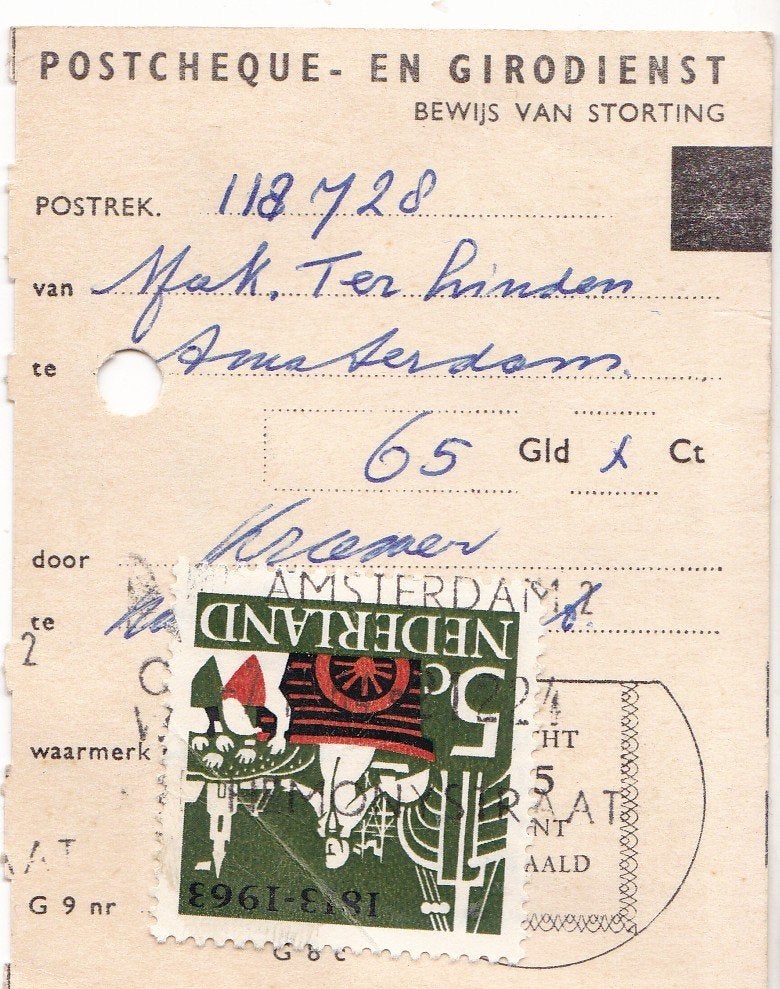 POSTCHEQUE- EN GIRODIENST
BEWIJS VAN STORTING
POSTREK. 118728
van Mak. Ter Linden
te Amsterdam.
65 Gld x Ct
door Kramer
AMSTERDAM 2
te
2
NEDERLAND
5c
224
waarmerk
HT
5
HEMONYSTRAAT
NT
AALD
AAT
1813-1963
G 9 nr
G 8 c